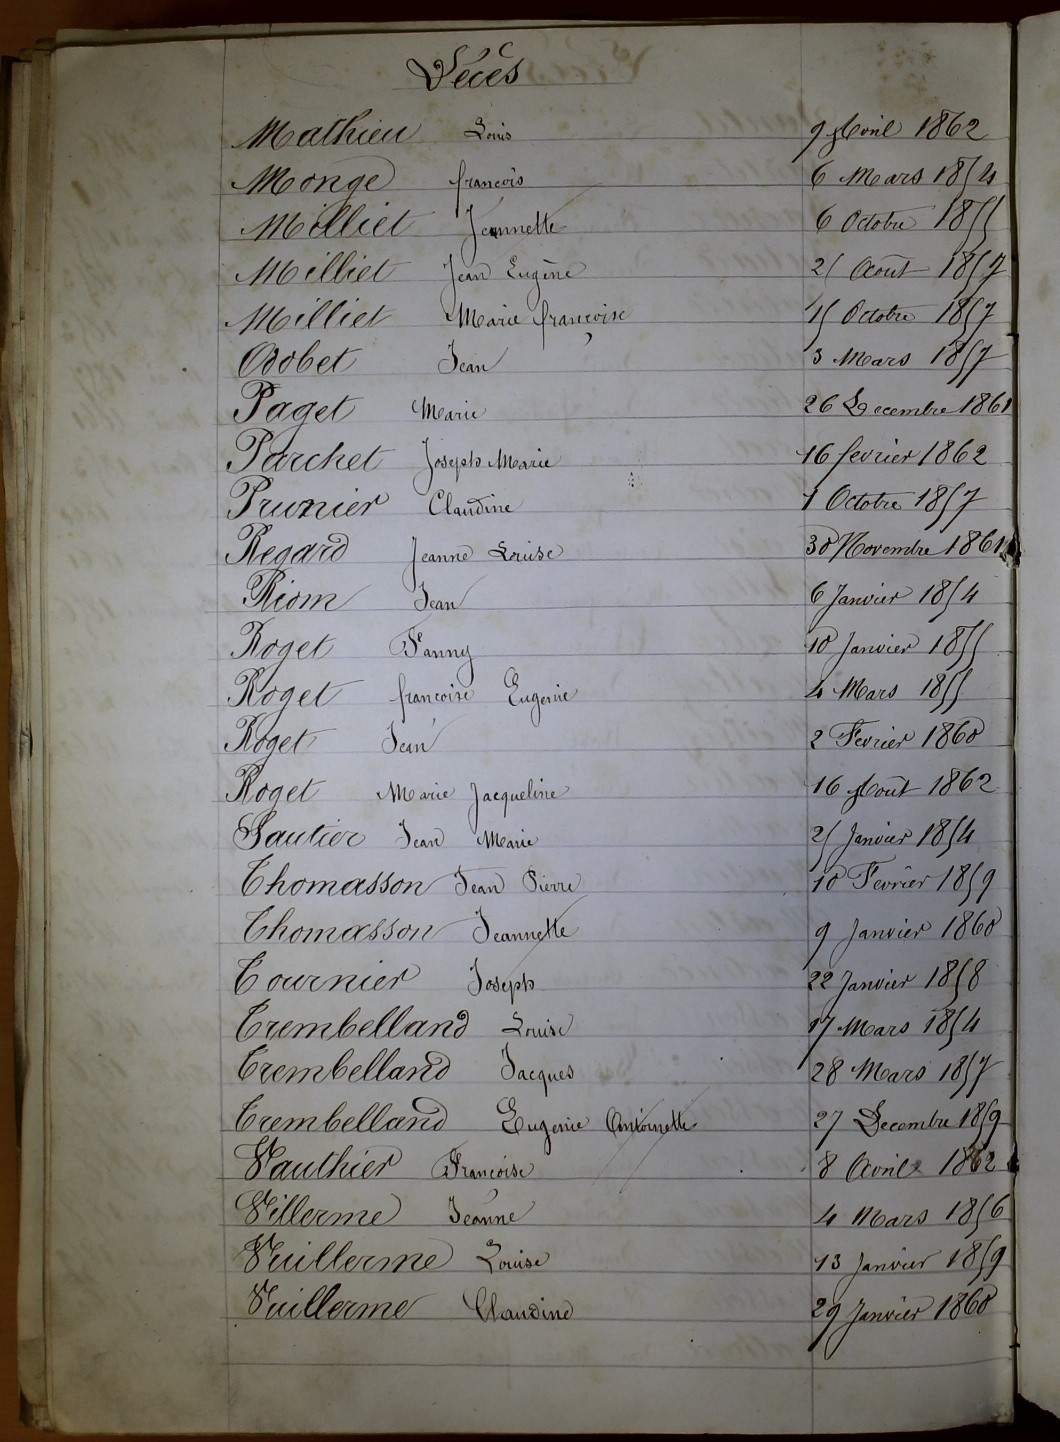 Décès
Mathieu Louis 9 Avril 1862
Monge francois 6 Mars 1854
Milliet Jeannette 6 Octobre 1855
Milliet Jean Eugène 25 Août 1857
Milliet Marie françoise 15 Octobre 1857
Odobet Jean 3 Mars 1857
Paget Marie 26 Decembre 1861
Parchet Joseph Marie 16 fevrier 1862
Prunier Claudine 1 Octobre 1857
Regard Jeanne Louise 30 Novembre 1861
Riom Jean 6 Janvier 1854
Roget Fanny 10 Janvier 1855
Roget francoise Eugenie 4 Mars 1855
Roget Jean 2 Fevrier 1860
Roget Marie Jacqueline 16 Août 1862
Sautier Jean Marie 25 Janvier 1854
Thomasson Jean Pierre 10 Fevrier 1859
Thomasson Jeannette 9 Janvier 1860
Tournier Joseph 22 Janvier 1858
Trembelland Louise 17 Mars 1854
Trembelland Jacques 28 Mars 1857
Trembelland Eugenie Antoinette 27 Decembre 1859
Vauthier Françoise 8 Avril 1862
Villerme Jeanne 4 Mars 1856
Vuillerme Louise 13 Janvier 1859
Vuillerme Claudine 29 Janvier 1860